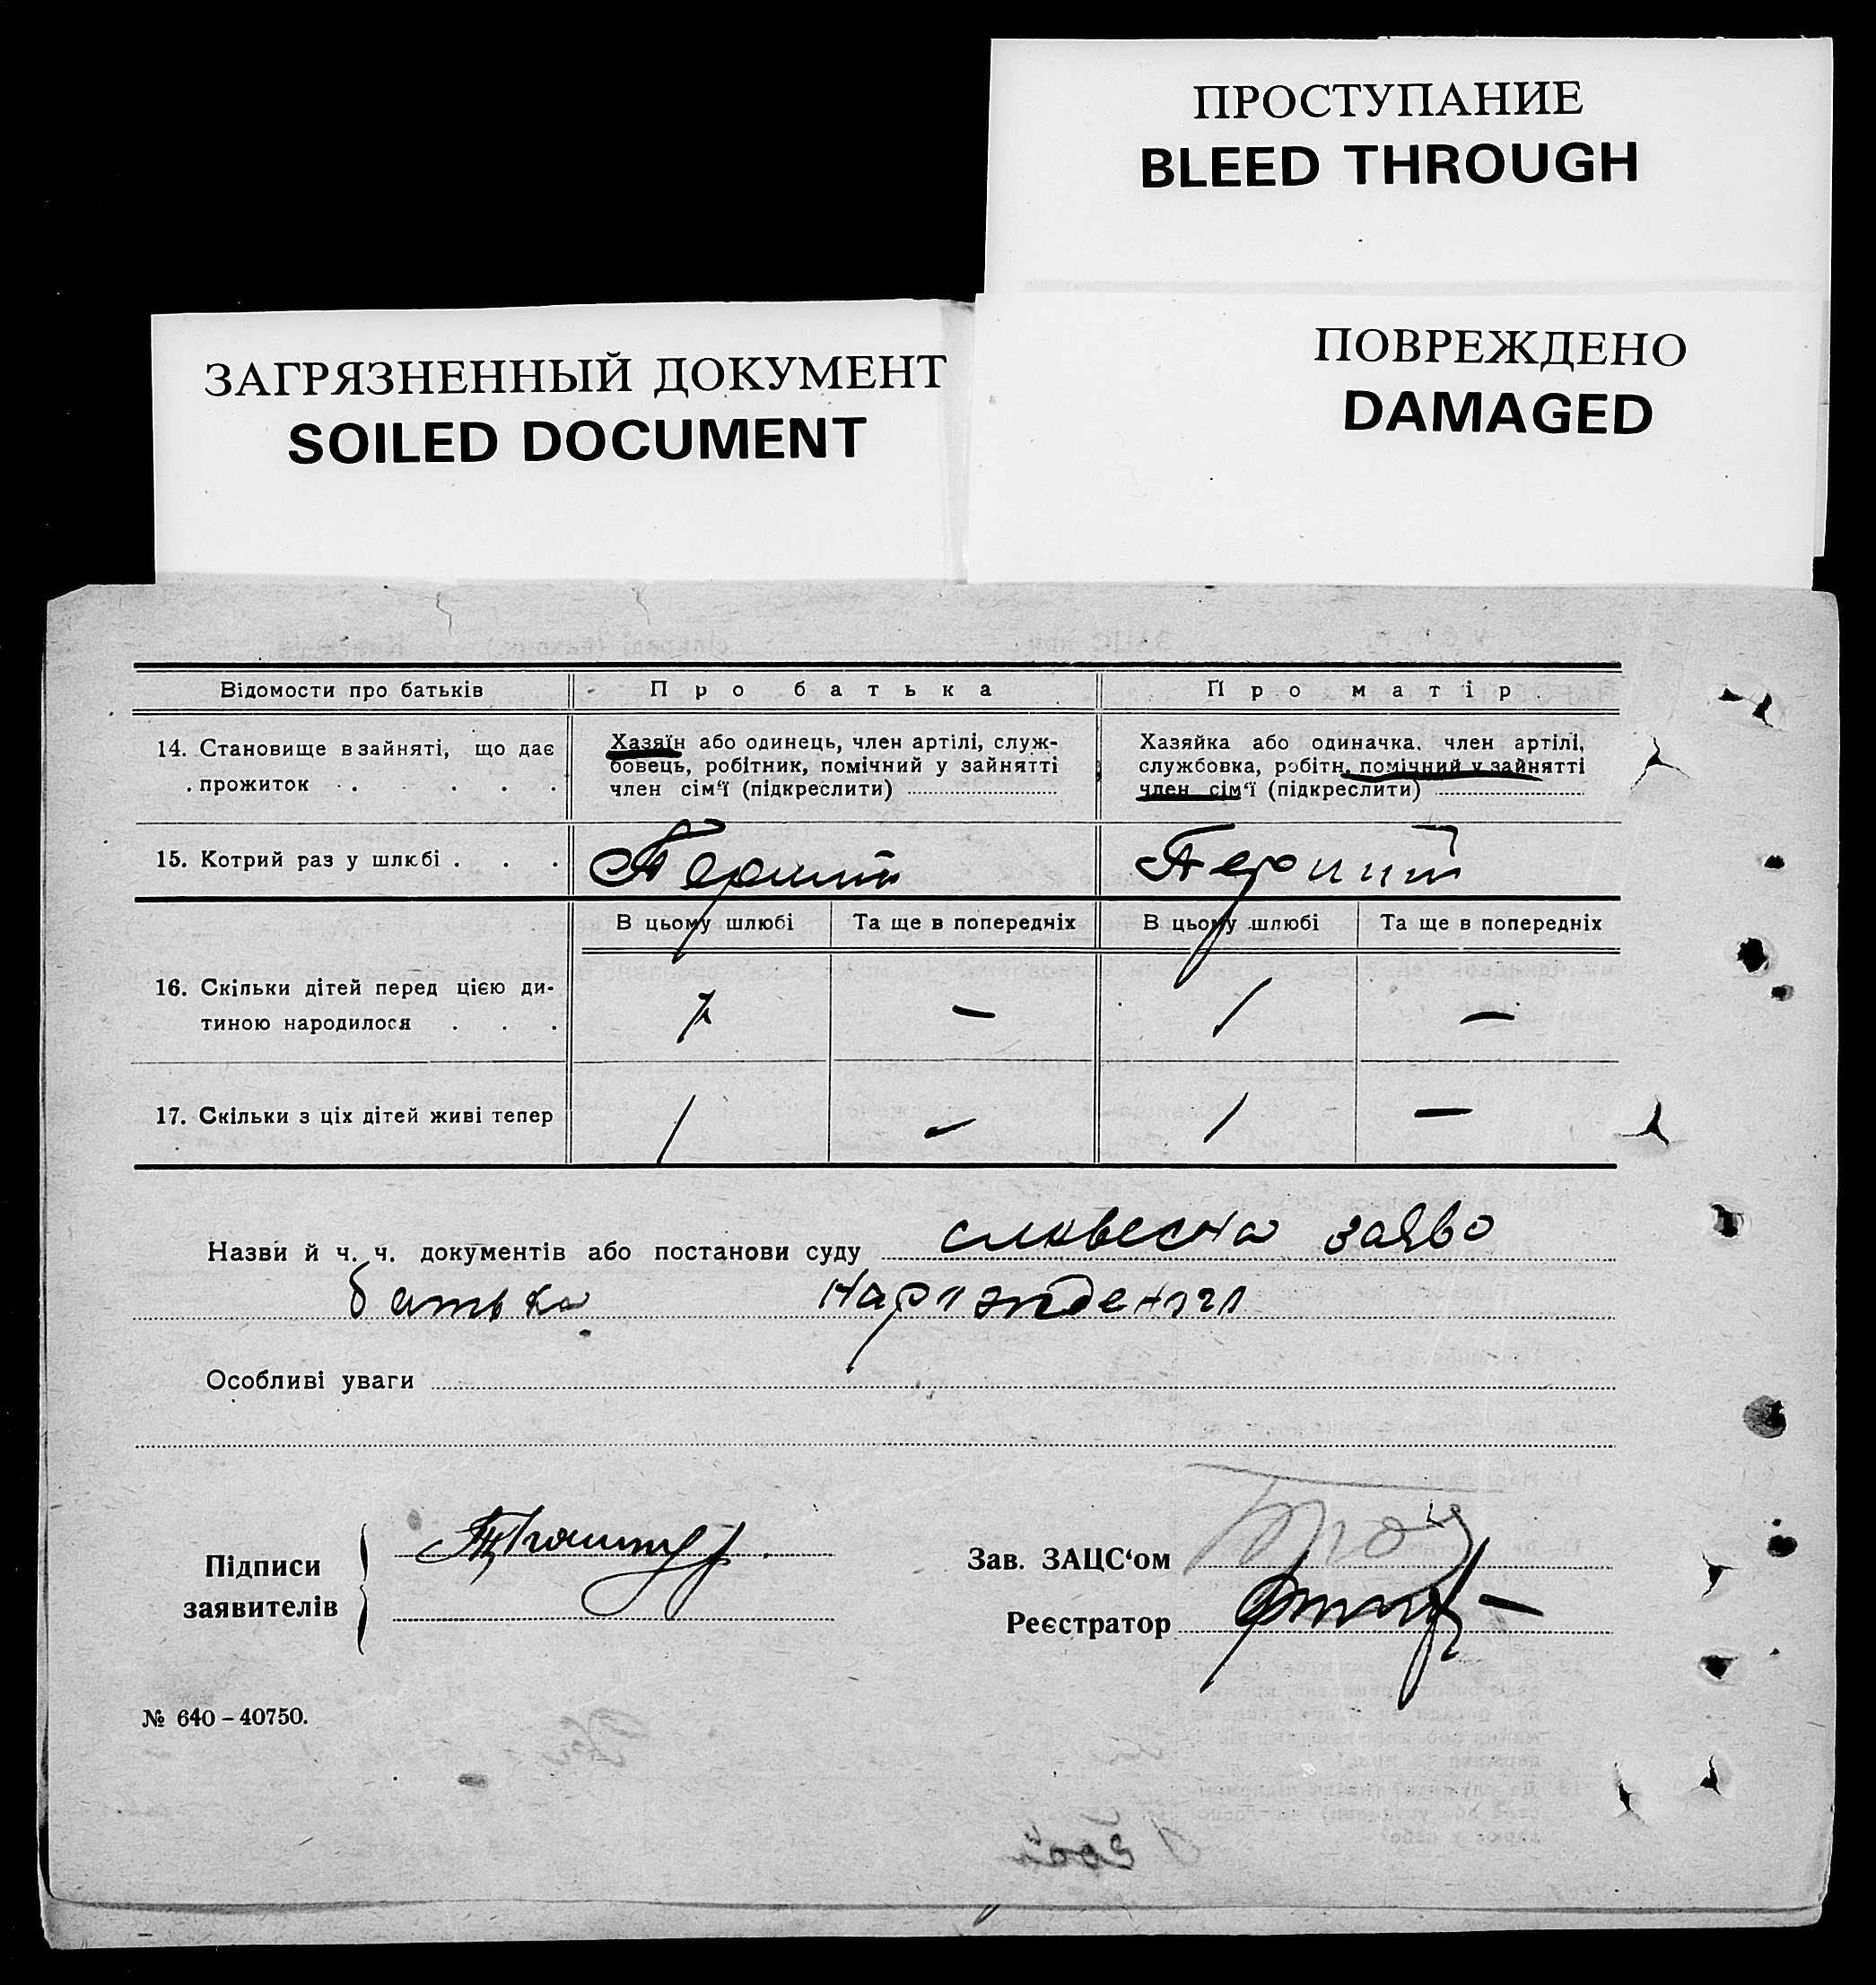 ПРОСТУПАНИЕ
BLEED THROUGH
ПОВРЕЖДЕНО
DAMAGED
ЗАГРЯЗНЕННЫЙ ДОКУМЕНТ
SOILED DOCUMENT
Відомости про батьків
Про батька
Про матір
14. Становище в зайняті, що дає
прожиток . . . .
Хазяїн або одинець, член артілі, служ-
бовець, робітник, помічний у зайнятті
член сім'ї (підкреслити)
Хазяйка або одиначка, член артілі,
службовка, робітн. помічний у зайнятті
член сім'ї (підкреслити)
15. Котрий раз у шлюбі . . .
Перший
Перший
В цьому шлюбі
Та ще в попередніх
В цьому шлюбі
Та ще в попередніх
16. Скільки дітей перед цією ди-
тиною народилося . . .
— 1 —
17. Скільки з ціх дітей живі тепер
1 — 1 —
Назви й ч. ч. документів або постанови суду словесна заява
батька
Особливі уваги
Підписи
заявителів
Зав. ЗАЦС'ом
Реєстратор
№ 640 – 40750.